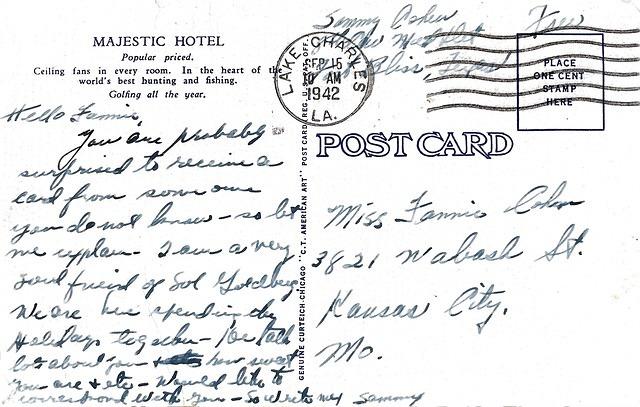 MAJESTIC HOTEL
Popular priced.
Ceiling fans in every room. In the heart of the
world's best hunting and fishing.
Golfing all the year.
Hello Fannie,
You are probably
surprised to receive a
card from some one
you do not know – so let
me explain – I am a very
good friend of Sol Goldberg.
We are here spending the
Holidays together – He talk
lots about you + how sweet
you are + etc – Would like to
correspond with you – So write me, Sammy
GENUINE CURTEICH-CHICAGO "C.T. AMERICAN ART" POST CARD (REG. U.S. PAT. OFF.)
LAKE CHARLES
SEP 15
10 AM
1942
LA.
Sammy Cohen Free
Bliss, Texas
PLACE
ONE CENT
STAMP
HERE
POST CARD
Miss Fannie Cohn
3821 Wabash St.
Kansas City,
Mo.